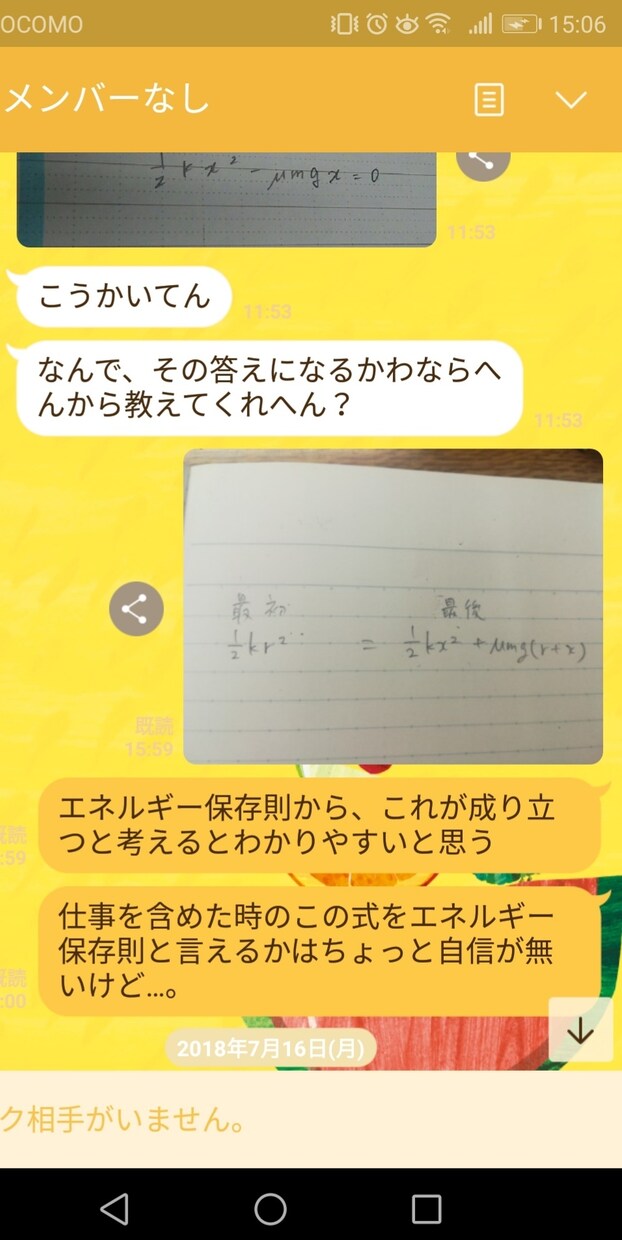 OCOMO 15:06
メンバーなし
1/2 kx² - μmgx = 0
11:53
こうかいてん
11:53
なんで、その答えになるかわならへ
んから教えてくれへん？
11:53
最初 最後
1/2 kr² = 1/2 kx² + μmg(r+x)
既読
15:59
エネルギー保存則から、これが成り立
つと考えるとわかりやすいと思う
既読
:59
仕事を含めた時のこの式をエネルギー
保存則と言えるかはちょっと自信が無
いけど...。
既読
:00
2018年7月16日(月)
ク相手がいません。